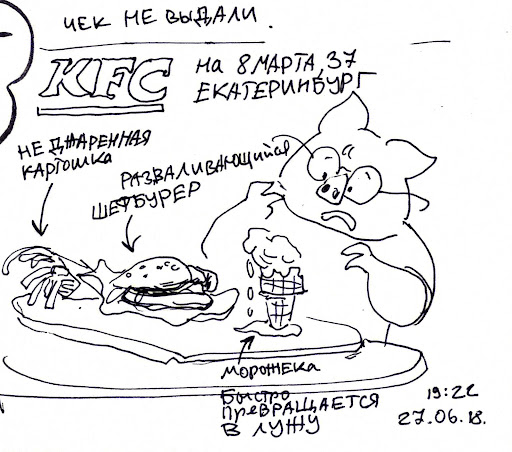 ЧЕК НЕ ВЫДАЛИ.
KFC
НА 8 МАРТА, 37
ЕКАТЕРИНБУРГ
НЕ ДЖАРЕННАЯ
КАРТОШКА
РАЗВАЛИВАЮЩИЙСЯ
ШЕФБУРЕР
МОРОЖЕКА
БЫСТРО
ПРЕВРАЩАЕТСЯ
В ЛУЖУ
19:22
27.06.18.